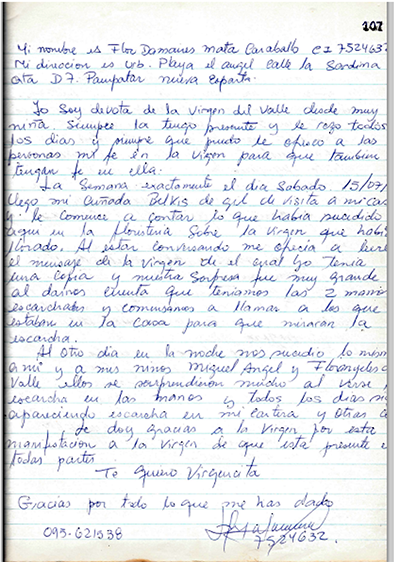 107
Mi nombre es Flor Damares Mata Caraballo CI 7524632
Mi direccion es urb. Playa el angel calle la Sardina
cta D7. Pampatar nueva esparta.
Yo Soy devota de la Virgen del Valle desde muy
niña. Siempre la tengo presente y le rezo todos
los dias y siempre que puedo le ofresco a las
personas mi fe en la virgen para que tambien
tengan fe en ella.
La Semana exactamente el dia Sabado 15/07/
llego mi cuñada Belkis de gil de visita a mi cas
y le comence a contar lo que habia sucedido
aqui en la floristeria Sobre la virgen que habi
llorado. Al estar conversando me ofrecia a leerl
el mensaje de la virgen de el cual yo tenia
una copia y nuestra Sorpresa fue muy grande
al darnos cuenta que teniamos las 2 manos
escarchadas y comensamos a llamar a los que
estaban en la casa para que miraran la
escarcha.
Al otro dia en la noche nos sucedio lo mism
a mi y a mis niños Miguel Angel y Florangeles d
Valle ellos se sorprendieron mucho al verse l
escarcha en las manos y todos los dias si
apareciendo escarcha en mi cartera y otras c
le doy gracias a la Virgen por esta
manifestacion a la Virgen de que esta presente e
todas partes.
Te quiero Virgencita
Gracias por todo lo que me has dado
095-621538
7524632.